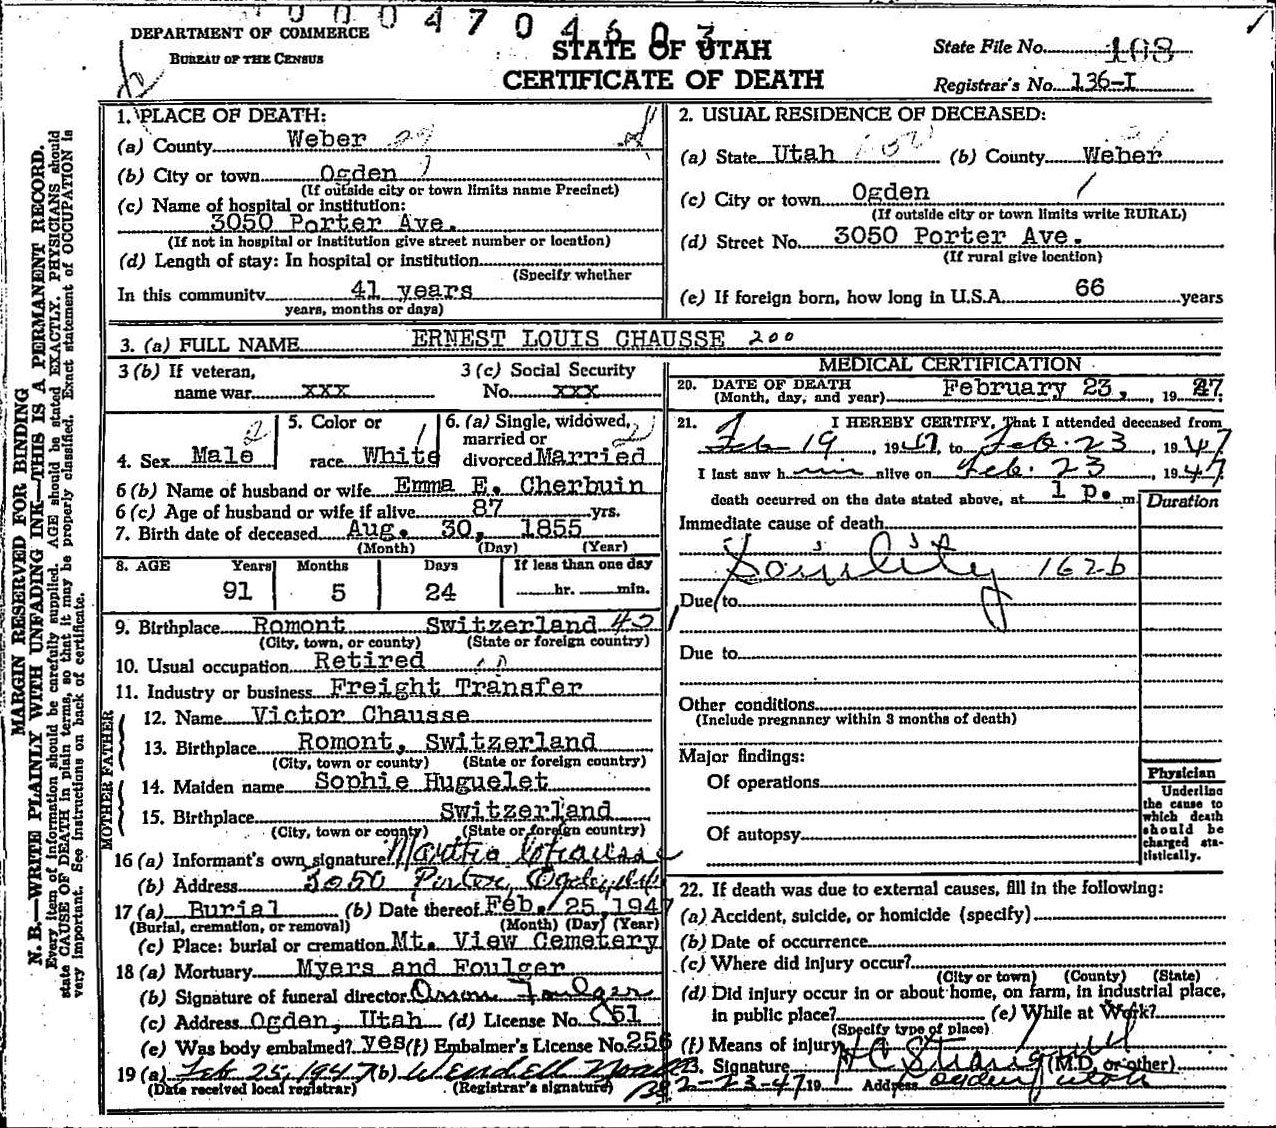 0004704603
DEPARTMENT OF COMMERCE
BUREAU OF THE CENSUS
STATE OF UTAH
CERTIFICATE OF DEATH
State File No. 168
Registrar's No. 136-I
MARGIN RESERVED FOR BINDING
N. B.—WRITE PLAINLY WITH UNFADING INK—THIS IS A PERMANENT RECORD.
Every item of information should be carefully supplied. AGE should be stated EXACTLY. PHYSICIANS should
state CAUSE OF DEATH in plain terms, so that it may be properly classified. Exact statement of OCCUPATION is
very important. See instructions on back of certificate.
1. PLACE OF DEATH:
(a) County Weber 29
(b) City or town Ogden
(If outside city or town limits name Precinct)
(c) Name of hospital or institution:
3050 Porter Ave.
(If not in hospital or institution give street number or location)
(d) Length of stay: In hospital or institution
(Specify whether
In this community 41 years
years, months or days)
2. USUAL RESIDENCE OF DECEASED:
(a) State Utah (b) County Weber
(c) City or town Ogden
(If outside city or town limits write RURAL)
(d) Street No. 3050 Porter Ave.
(If rural give location)
(e) If foreign born, how long in U.S.A. 66 years
3. (a) FULL NAME ERNEST LOUIS CHAUSSE 200
3 (b) If veteran,
name war xxx
3 (c) Social Security
No. xxx
4. Sex Male 2
5. Color or
race White 1
6. (a) Single, widowed,
married or
divorced Married 2
6 (b) Name of husband or wife Emma E. Cherbuin
6 (c) Age of husband or wife if alive 87 yrs.
7. Birth date of deceased Aug. 30, 1855
(Month) (Day) (Year)
8. AGE Years Months Days If less than one day
91 5 24 hr. min.
9. Birthplace Romont Switzerland 40
(City, town, or county) (State or foreign country)
10. Usual occupation Retired
11. Industry or business Freight Transfer
FATHER
12. Name Victor Chausse
13. Birthplace Romont, Switzerland
(City, town or county) (State or foreign country)
MOTHER
14. Maiden name Sophie Huguelet
15. Birthplace Switzerland
(City, town or county) (State or foreign country)
16 (a) Informant's own signature Martha Chausse
(b) Address 3050 Porter, Ogden
17 (a) Burial (b) Date thereof Feb. 25, 1947
(Burial, cremation, or removal) (Month) (Day) (Year)
(c) Place: burial or cremation Mt. View Cemetery
18 (a) Mortuary Myers and Foulger
(b) Signature of funeral director Foulger
(c) Address Ogden, Utah (d) License No. 51
(e) Was body embalmed? yes (f) Embalmer's License No. 256
19 (a) Feb 25, 1947 (b) Wendell
(Date received local registrar) (Registrar's signature)
MEDICAL CERTIFICATION
20. DATE OF DEATH
(Month, day, and year) February 23, , 19 47.
21. I HEREBY CERTIFY, That I attended deceased from
Feb 19, 1947, to Feb. 23, 1947
I last saw him alive on Feb. 23 1947
death occurred on the date stated above, at 1 p. m.
Duration
Immediate cause of death
Senility 162b
Due to
Due to
Other conditions
(Include pregnancy within 3 months of death)
Major findings:
Of operations
Of autopsy
Physician
Underline
the cause to
which death
should be
charged sta-
tistically.
22. If death was due to external causes, fill in the following:
(a) Accident, suicide, or homicide (specify)
(b) Date of occurrence
(c) Where did injury occur?
(City or town) (County) (State)
(d) Did injury occur in or about home, on farm, in industrial place,
in public place? (e) While at Work?
(Specify type of place)
(f) Means of injury
23. Signature H C (M.D. or other)
2-23-47 19 Address Ogden, Utah